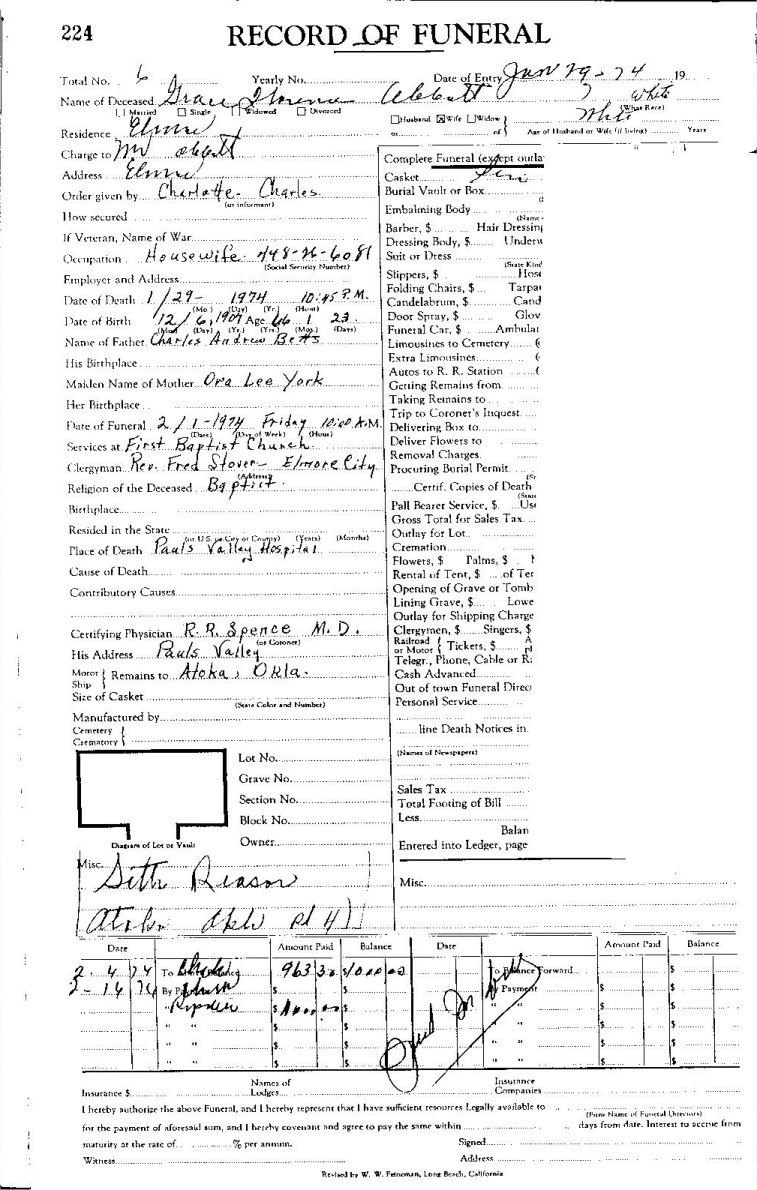 224
RECORD OF FUNERAL
Total No. 6 Yearly No. Date of Entry Jan 29 - 74 19
Name of Deceased Grace Florence Abbott White
Married Single Widowed Divorced (What Race)
Husband Wife Widow
or of Age of Husband or Wife (if living) Years
Residence Elmore
Charge to Mr Abbott
Address Elmore
Order given by Charlotte - Charles
(or informant)
How secured
If Veteran, Name of War
Occupation Housewife 448-26-6081
(Social Security Number)
Employer and Address
Date of Death 1/29- 1974 10:45 P.M.
(Mo.) (Day) (Yr.) (Hour)
Date of Birth 12/6, 1907 Age 66 1 23
(Mo.) (Day) (Yr.) (Yrs.) (Mos.) (Days)
Name of Father Charles Andrew Betts
His Birthplace
Maiden Name of Mother Ora Lee York
Her Birthplace
Date of Funeral 2/1-1974 Friday 10:00 A.M.
(Date) (Day of Week) (Hour)
Services at First Baptist Church
Clergyman Rev. Fred Stover - Elmore City
(Address)
Religion of the Deceased Baptist
Birthplace
Resided in the State
(or U.S. or City or County) (Years) (Months)
Place of Death Pauls Valley Hospital
Cause of Death
Contributory Causes
Certifying Physician R. R. Spence M.D.
(or Coroner)
His Address Pauls Valley
Motor Ship Remains to Atoka, Okla.
Size of Casket
(State Color and Number)
Manufactured by
Cemetery
Crematory
Lot No.
Grave No.
Section No.
Block No.
Owner
Diagram of Lot or Vault
Complete Funeral (except outla
Casket
Burial Vault or Box
Embalming Body
(Name
Barber, $ Hair Dressing
Dressing Body, $ Underw
Suit or Dress
(State Kind
Slippers, $ Hose
Folding Chairs, $ Tarpa
Candelabrum, $ Cand
Door Spray, $ Glov
Funeral Car, $ Ambulan
Limousines to Cemetery
Extra Limousines
Autos to R. R. Station
Getting Remains from
Taking Remains to
Trip to Coroner's Inquest
Delivering Box to
Deliver Flowers to
Removal Charges
Procuring Burial Permit
Certif. Copies of Death
(State
Pall Bearer Service, $ Use
Gross Total for Sales Tax
Outlay for Lot
Cremation
Flowers, $ Palms, $
Rental of Tent, $ of Ter
Opening of Grave or Tomb
Lining Grave, $ Lowe
Outlay for Shipping Charge
Clergymen, $ Singers, $
Railroad or Motor Tickets, $
Telegr., Phone, Cable or Ra
Cash Advanced
Out of town Funeral Direc
Personal Service
line Death Notices in
(Names of Newspapers)
Sales Tax
Total Footing of Bill
Less
Balan
Entered into Ledger, page
Misc.
Misc. Seth Reason
Atoka Okla
Date Amount Paid Balance Date Amount Paid Balance
2 - 4 74 To Balance 963 30 To Balance Forward $
2 - 14 74 By Payment $ By Payment $ $
" " $ " " $ $
" " $ " " $ $
" " $ " " $ $
Insurance $ Names of Lodges Insurance Companies
I hereby authorize the above Funeral, and I hereby represent that I have sufficient resources Legally available to
(Firm Name of Funeral Directors)
for the payment of aforesaid sum, and I hereby covenant and agree to pay the same within days from date. Interest to accrue from
maturity at the rate of % per annum. Signed
Witness Address
Revised by W. W. Feinoman, Long Beach, California